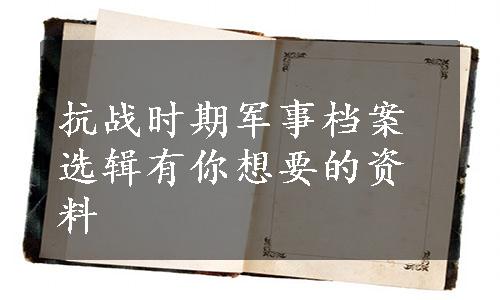 抗战时期军事档案
选辑有你想要的资
料